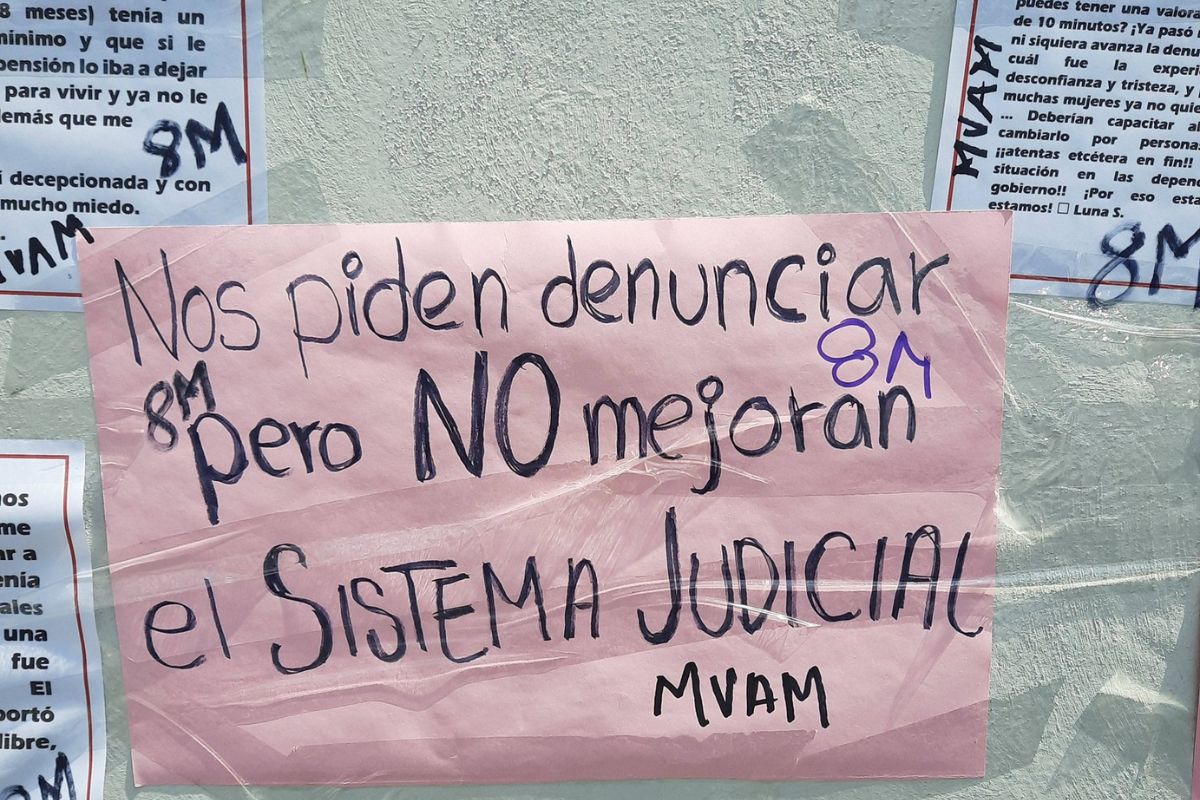 8 meses) tenía un
mínimo y que si le
pensión lo iba a dejar
para vivir y ya no le
demás que me
8M
decepcionada y con
mucho miedo.
MVAM
puedes tener una valora
de 10 minutos? ¡Ya pasó
ni siquiera avanza la denu
cuál fue la experi
desconfianza y tristeza, y
muchas mujeres ya no quie
... Deberían capacitar al
cambiarlo por persona
¡¡atentas etcétera en fin!!
situación en las depend
gobierno!! ¡Por eso esta
estamos! □ Luna S.
MVAM
8M
Nos piden denunciar
8M
8M
pero NO mejoran
el SISTEMA JUDICIAL
MVAM
nos
me
ar a
enía
ales
una
fue
El
portó
libre,